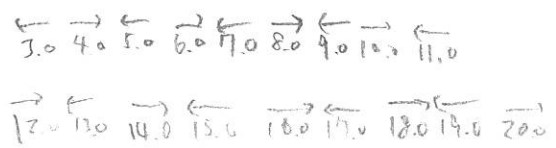 ← → ← → ← → ← → ←
3.0 4.0 5.0 6.0 7.0 8.0 9.0 10.0 11.0
→ ← → ← → ← → ← →
12.0 13.0 14.0 15.0 16.0 17.0 18.0 19.0 20.0